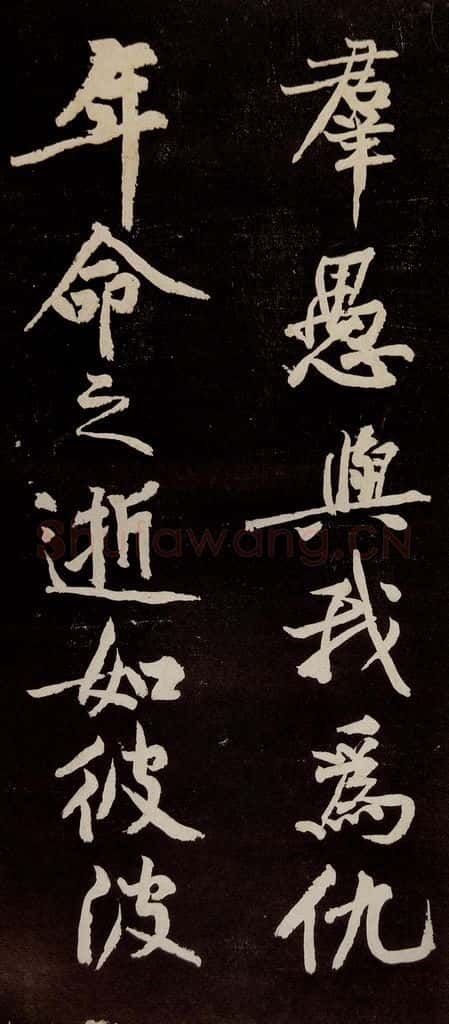 羣愚與我為仇
年命之逝如彼波
Shufawang.CN